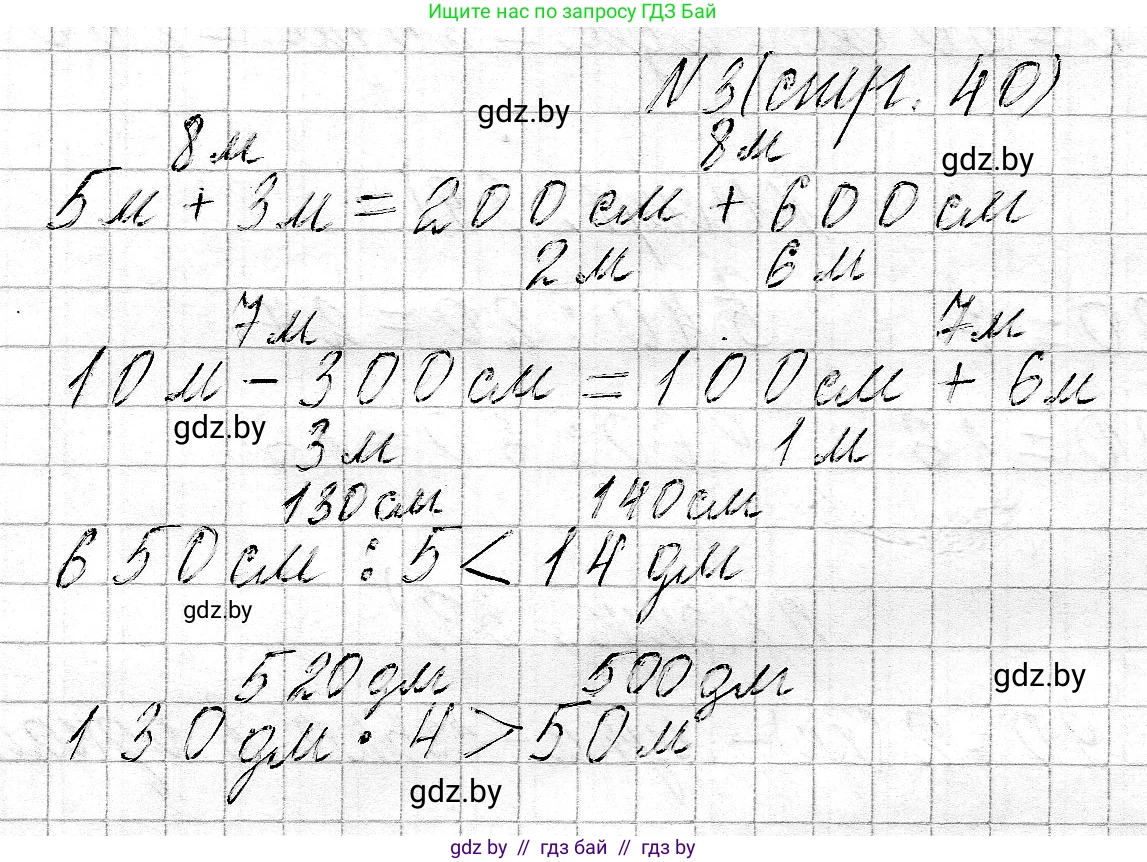 Ищите нас по запросу ГДЗ Бай
N 3 (стр. 40)
gdz.by
8 м 8 м
gdz.by
5 м + 3 м = 200 см + 600 см
2 м 6 м
7 м 7 м
10 м - 300 см = 100 см + 6 м
gdz.by
3 м 1 м
130 см 140 см
650 см : 5 < 14 дм
gdz.by
520 дм 500 дм
gdz.by
130 дм · 4 > 50 м
gdz.by
gdz by // гдз бай // гдз by